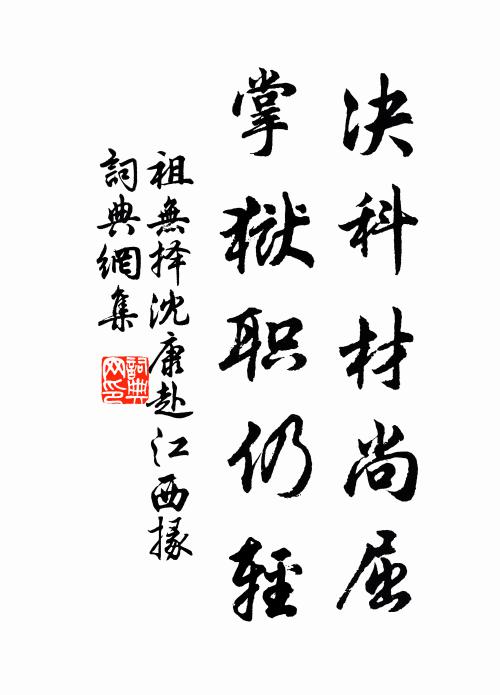 决科材尚屈
掌獄职仍輕
祖無择沈康赴江西掾
詞典網集
詞典網印